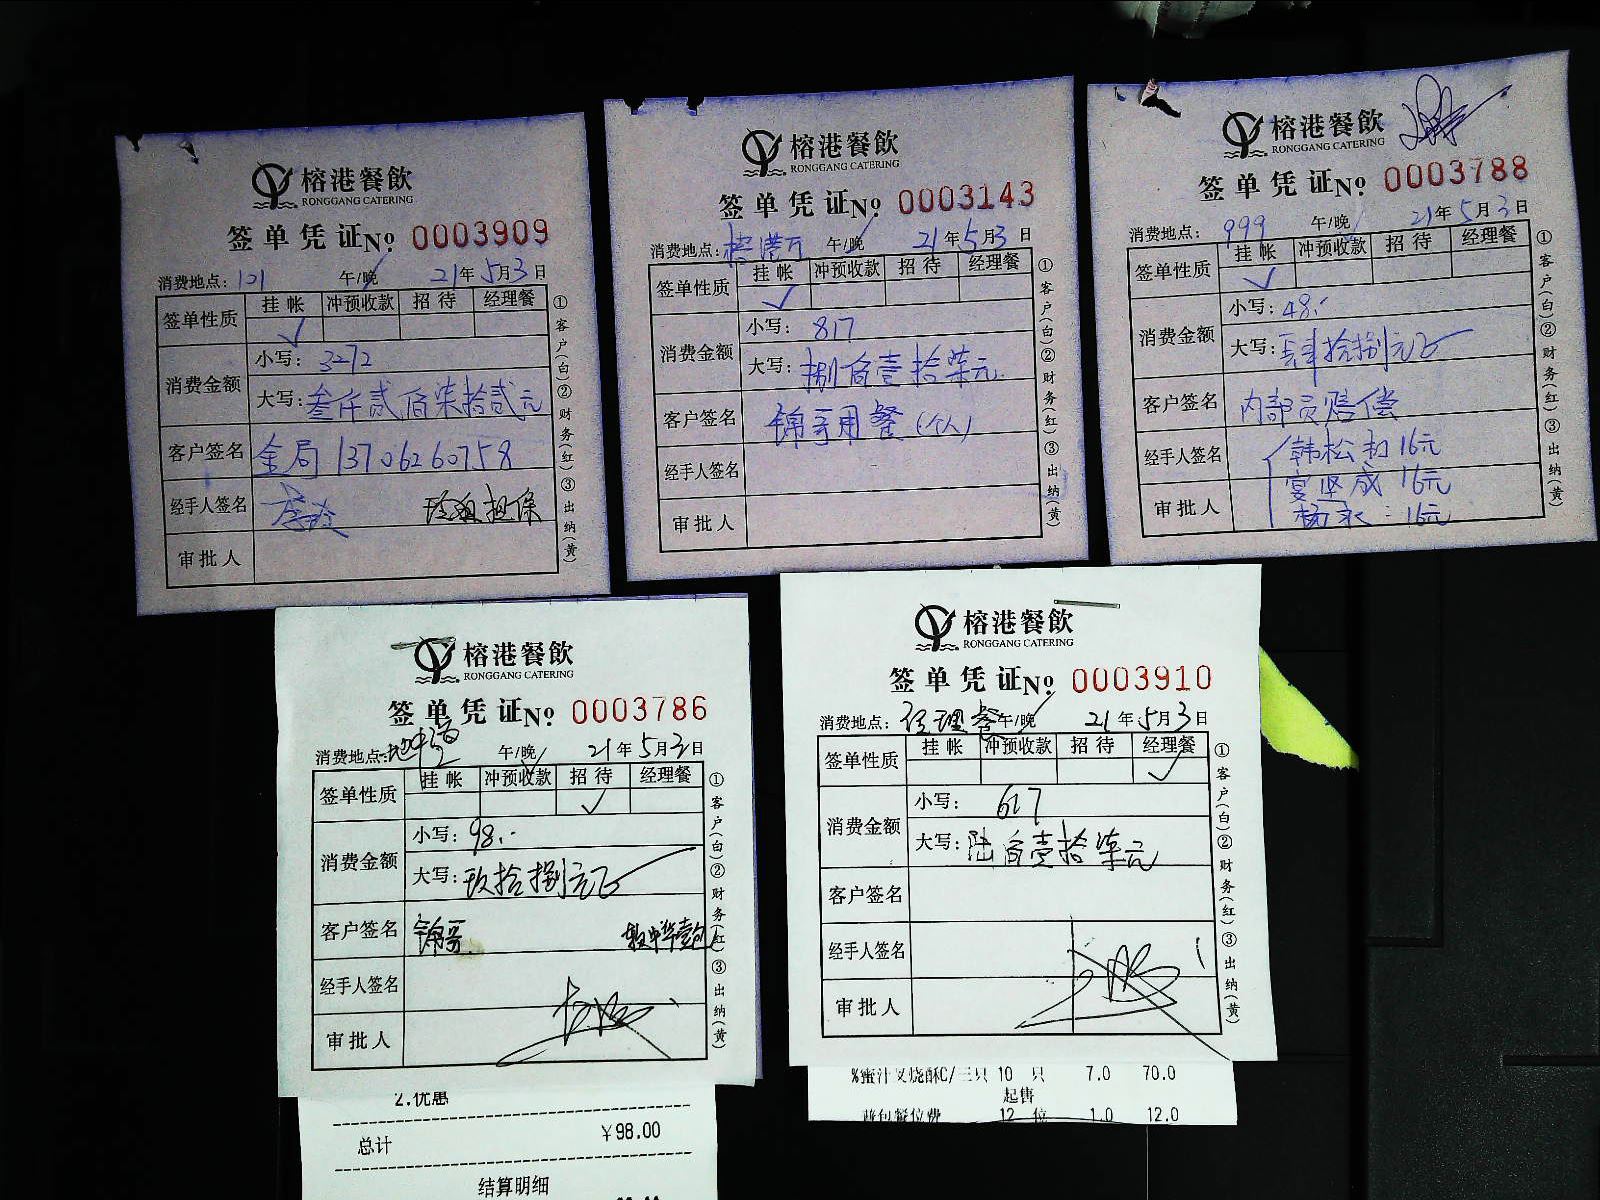 榕港餐飲
RONGGANG CATERING
签单凭证№ 0003909
消费地点: 121 午/晚 21年5月3日
签单性质 挂帐 冲预收款 招待 经理餐
✓
消费金额 小写: 3272
大写: 叁仟贰佰柒拾贰元
客户签名 金局 13706260758
经手人签名 担保
审批人
①客户(白)②财务(红)③出纳(黄)
榕港餐飲
RONGGANG CATERING
签单凭证№ 0003143
消费地点: 榕港厅 午/晚 21年5月3日
签单性质 挂帐 冲预收款 招待 经理餐
✓
消费金额 小写: 817
大写: 捌佰壹拾柒元
客户签名 锦哥用餐(个人)
经手人签名
审批人
①客户(白)②财务(红)③出纳(黄)
榕港餐飲
RONGGANG CATERING
签单凭证№ 0003788
消费地点: 999 午/晚 21年5月3日
签单性质 挂帐 冲预收款 招待 经理餐
✓
消费金额 小写: 48.-
大写: 肆拾捌元正
客户签名 内部员赔偿
经手人签名 韩松初 16元
审批人 宴坚成 16元
杨永: 16元
①客户(白)②财务(红)③出纳(黄)
榕港餐飲
RONGGANG CATERING
签单凭证№ 0003786
消费地点: 地中海2 午/晚 21年5月3日
签单性质 挂帐 冲预收款 招待 经理餐
✓
消费金额 小写: 98.-
大写: 玖拾捌元正
客户签名 锦哥
经手人签名
审批人
①客户(白)②财务(红)③出纳(黄)
2.优惠
总计 ¥98.00
结算明细
榕港餐飲
RONGGANG CATERING
签单凭证№ 0003910
消费地点: 经理餐 午/晚 21年5月3日
签单性质 挂帐 冲预收款 招待 经理餐
✓
消费金额 小写: 617
大写: 陆佰壹拾柒元
客户签名
经手人签名
审批人
①客户(白)②财务(红)③出纳(黄)
%蜜汁叉烧酥C/三只 10 只 7.0 70.0
起售
餐位费 12 位 1.0 12.0